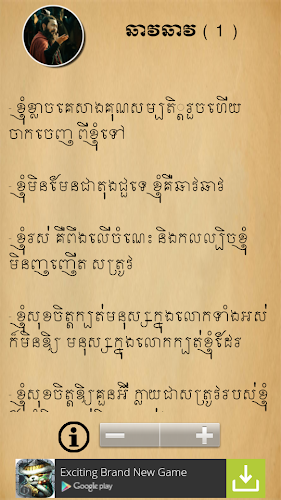 ឆាវឆាវ ( 1 )
- ខ្ញុំខ្លាចគេសាងគុណសម្បត្តិរួចហើយ
ចាកចេញ ពីខ្ញុំទៅ
- ខ្ញុំមិនមែនជាតុងជួទេ ខ្ញុំគឺឆាវឆាវ
- ខ្ញុំរស់ គឺពឹងលើចំណេះ និងកលល្បិចខ្ញុំ
មិនញញើត សត្រូវ
- ខ្ញុំសុខចិត្តក្បត់មនុស្សក្នុងលោកទាំងអស់
ក៏មិនឱ្យ មនុស្សក្នុងលោកក្បត់ខ្ញុំដែរ
- ខ្ញុំសុខចិត្តឱ្យគួនអ៊ី ក្លាយជាសត្រូវរបស់ខ្ញុំ
Exciting Brand New Game
Google play